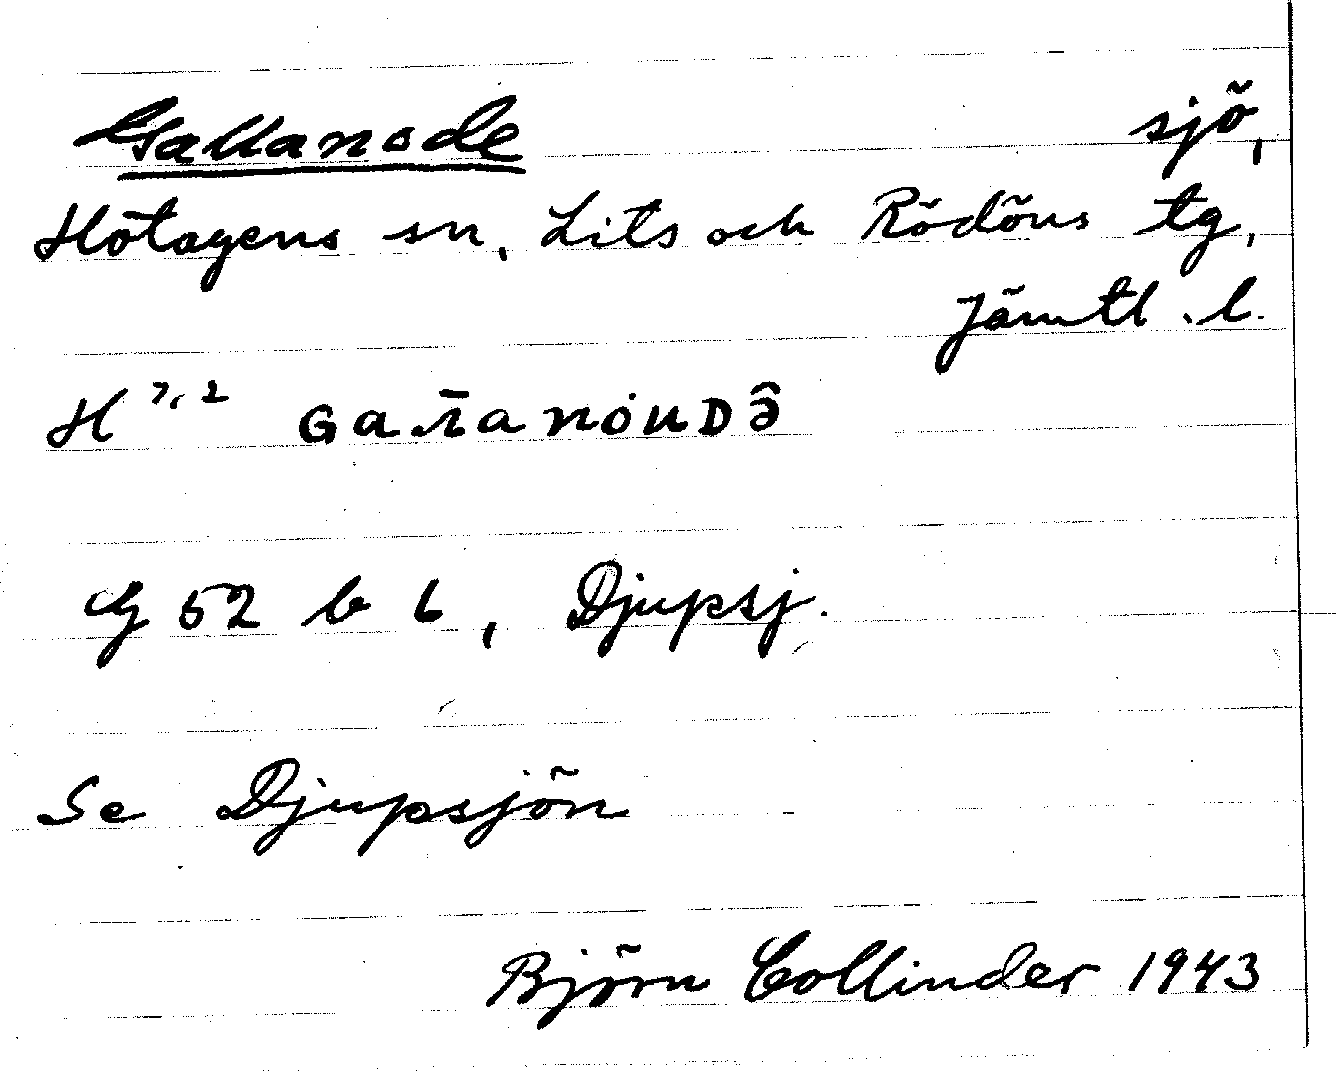 Gallanode sjö,
Hotagens sn, Lits och Rödöns tg,
Jämtl. l.
H
G 52 b 6, Djupsj.
Se Djupsjön
Björn Collinder 1943